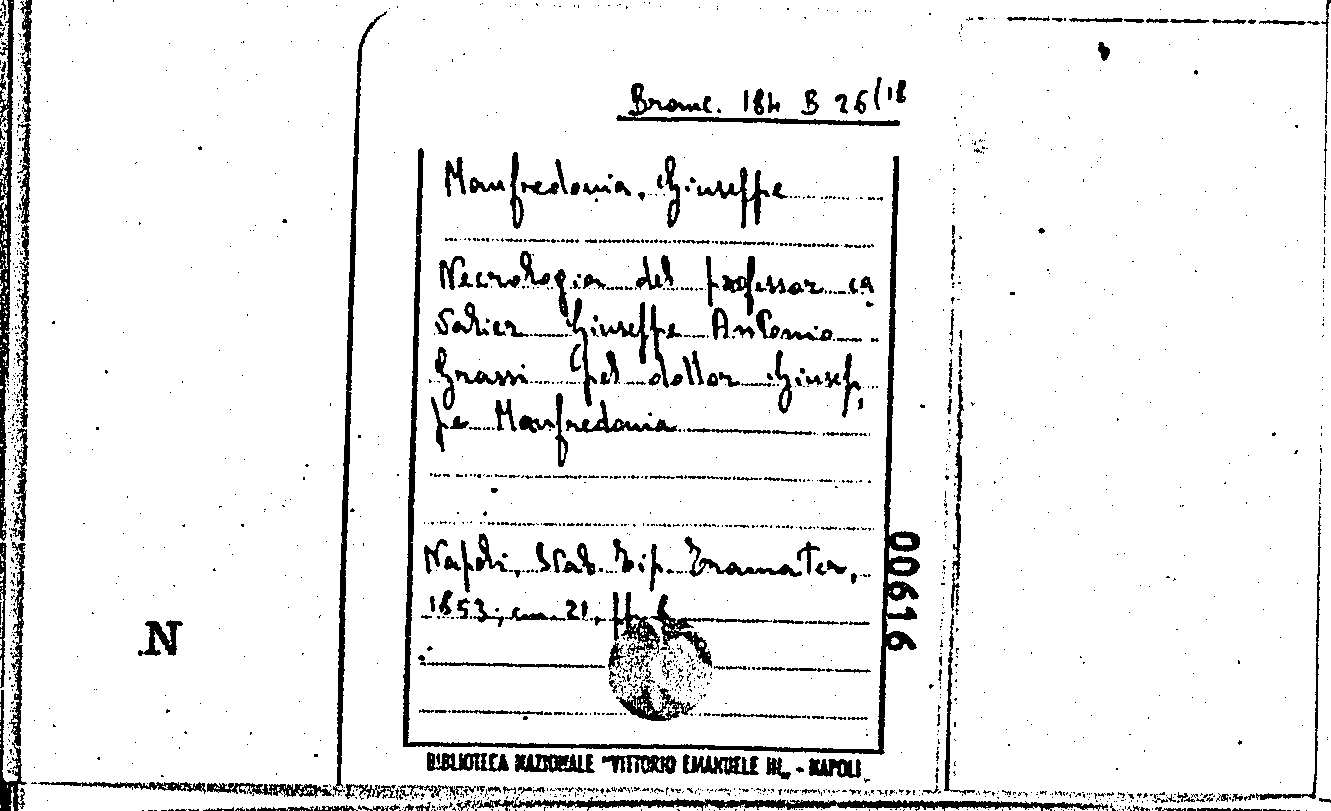 Branc. 184 B 26/18
Manfredonia, Giuseppe
Necrologia del professor ca
valier Giuseppe Antonio
Grassi pel dottor Giusep,
pe Manfredonia
Napoli, Stab. Tip. Tramater,
1853; cm. 21, pp. 8
00616
N
BIBLIOTECA NAZIONALE "VITTORIO EMANUELE III„ - NAPOLI